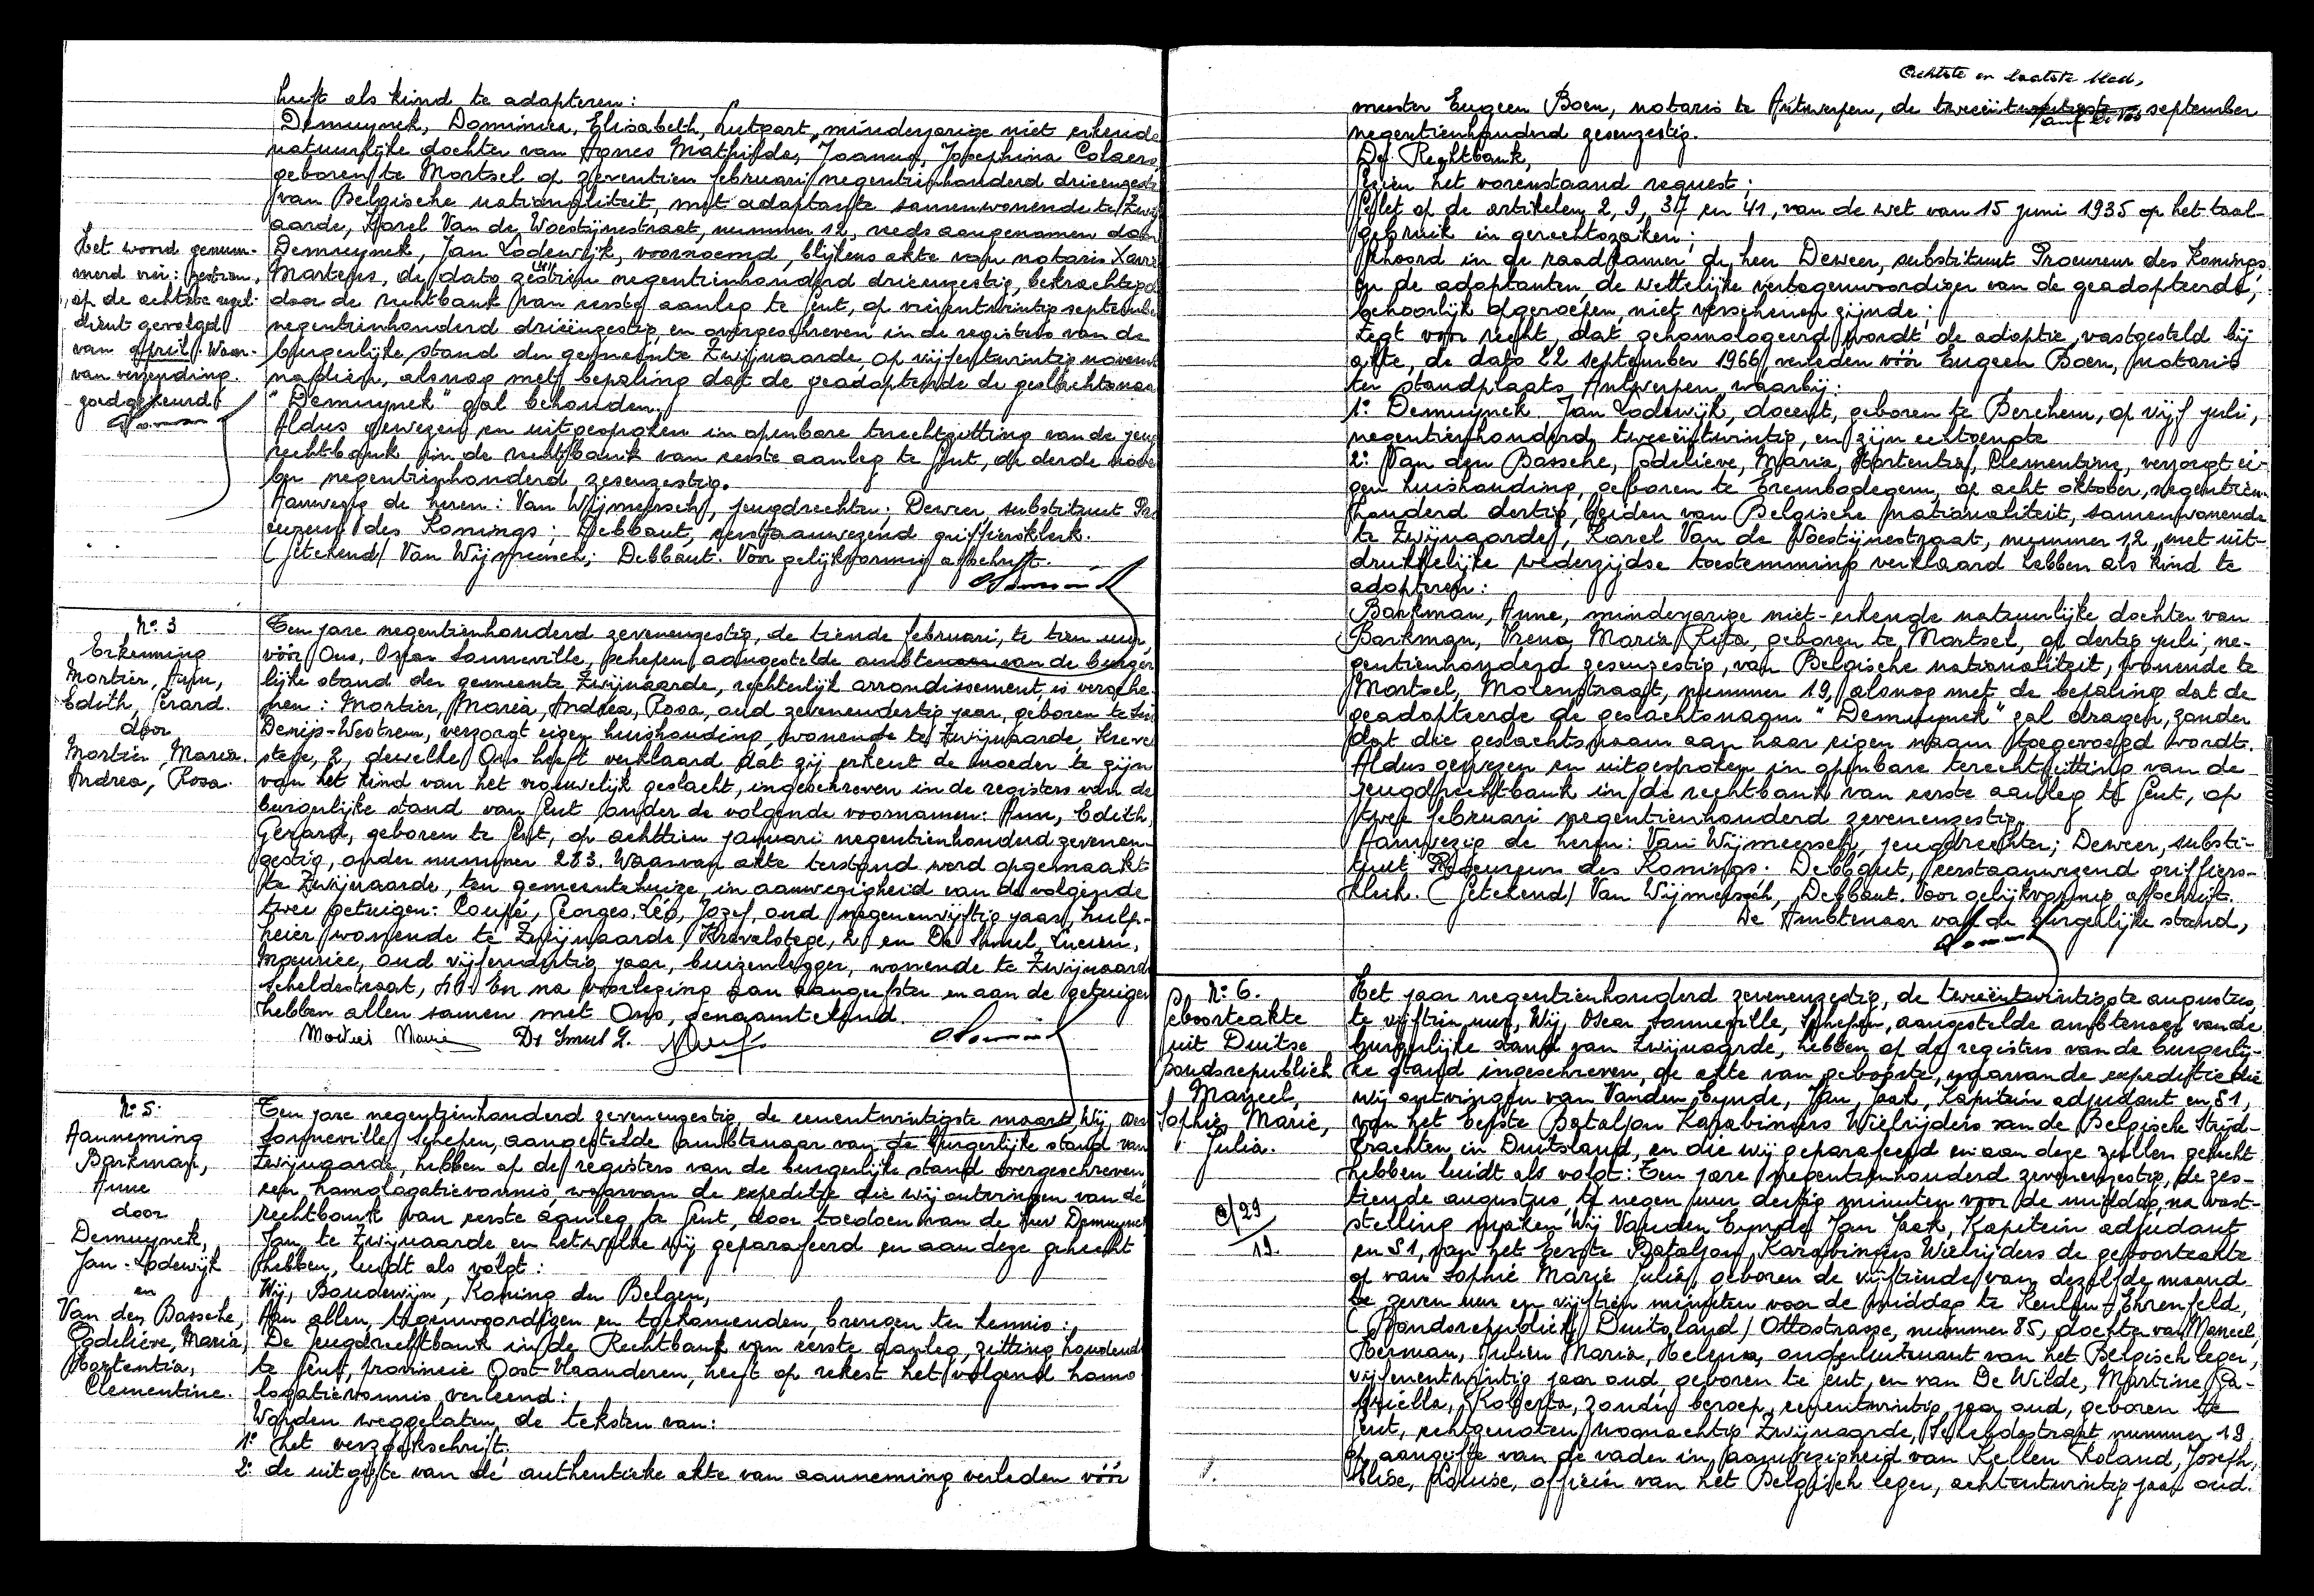 heeft als kind te adopteren:
Demuynck, Dominica, Elisabeth, Lutgart, minderjarige niet erkende
natuurlijke dochter van Agnes Mathilde, Joanna, Josephina Colaers
geboren te Mortsel op zeventien februari negentienhonderd drieenzestig
van Belgische nationaliteit, met adoptante samenwonende te Zwijn
aarde, Karel Van de Woestijnestraat, nummer 12, reeds aangenomen door
Demuynck, Jan Lodewijk, voornoemd, blijkens akte van notaris Xavier
Martens, de dato zestien negentienhonderd drieenzestig, bekrachtigd
door de rechtbank van eerste aanleg te Gent, op vierentwintig september
negentienhonderd drieënzestig, en overgeschreven in de registers van de
burgerlijke stand der gemeente Zwijnaarde, op vijfentwintig november
nadien, alsnog met bepaling dat de geadopteerde de geslachtsnaam
"Demuynck" zal behouden.
Aldus gewezen en uitgesproken in openbare terechtzitting van de jeug
rechtbank in de rechtbank van eerste aanleg te Gent, op derde novem
ber negentienhonderd zesenzestig.
Aanwezig de heren: Van Wijmeersch, jeugdrechter; Deweer substituut Pro
cureur des Konings; Debbaut, eerstaanwezend griffiersklerk.
(Getekend) Van Wijmeersch; Debbaut. Voor gelijkvormig afschrift.
Het woord genum-
merd vier: zestien,
op de achtste regel
dient gevolgd
van april. Waar-
van verzending
goedgekeurd
N° 3
Erkenning
Mortier, Ann,
Edith, Gerard.
door
Mortier, Maria.
Andrea, Rosa.
Ten jare negentienhonderd zevenenzestig, de tiende februari, te tien uur,
vóór Ons, Oscar Sonneville, schepen, aangestelde ambtenaar van de burger
lijke stand der gemeente Zwijnaarde, rechterlijk arrondissement is versche-
nen: Mortier, Maria, Andrea, Rosa, oud zevenendertig jaar, geboren te Sint
Denijs-Westrem, verzorgt eigen huishouding, wonende te Zwijnaarde, Kreve
stege, 2, dewelke Ons heeft verklaard dat zij erkent de moeder te zijn
van het kind van het vrouwelijk geslacht, ingeschreven in de registers van de
burgerlijke stand van Gent onder de volgende voornamen: Ann, Edith,
Gerard, geboren te Gent, op achttien januari negentienhonderd zevenen-
zestig, onder nummer 283. Waarvan akte terstond werd opgemaakt
te Zwijnaarde, ten gemeentehuize, in aanwezigheid van de volgende
twee getuigen: Coupé, Georges, Léo, Jozef, oud negenenvijftig jaar, hulp-
heier wonende te Zwijnaarde, Krevelstege, 2 en De Smul, Lucien,
Maurice, oud vijfendertig jaar, buizenlegger, wonende te Zwijnaarde
Scheldestraat, En na voorlezing aan aangeefster en aan de getuigen
hebben allen samen met Ons, genaamtekend.
Mortier Maria De Smul L.
N° 5.
Aanneming
Barkman,
Anne
door
Demuynck,
Jan-Lodewijk
en
Van den Bossche,
Godelieve, Maria,
Hortentia,
Clementine.
Ten jare negentienhonderd zevenenzestig, de eenentwintigste maart, Wij, Oscar
Sonneville, schepen, aangestelde ambtenaar van de burgerlijke stand van
Zwijnaarde, hebben op de registers van de burgerlijke stand overgeschreven
een homologatievonnis, waarvan de expeditie die wij ontvingen van de
rechtbank van eerste aanleg te Gent, door toedoen van de heer Demuynck
Jan te Zwijnaarde en hetwelke wij geparafeerd en aan deze gehecht
hebben, luidt als volgt:
Wij, Boudewijn, Koning der Belgen,
Aan allen, tegenwoordigen en toekomenden, brengen ten kennis:
De Jeugdrechtbank in de Rechtbank van eerste aanleg, zitting houdende
te Gent, provincie Oost-Vlaanderen, heeft op rekest het volgend homo-
logatievonnis verleend:
Worden weggelaten de teksten van:
1° het verzoekschrift;
2° de uitgifte van de authentieke akte van aanneming verleden vóór
Achtste en laatste blad,
meester Eugeen Boen, notaris te Antwerpen, de september
negentienhonderd zesenzestig.
De Rechtbank,
Gezien het vorenstaand request;
Gelet op de artikelen 2, 9, 37 en 41, van de wet van 15 juni 1935 op het taal-
gebruik in gerechtszaken;
Gehoord in de raadkamer de heer Deweer, substituut Procureur des Konings
en de adoptanten, de wettelijke vertegenwoordiger van de geadopteerde,
behoorlijk opgeroepen, niet verschenen zijnde;
Zegt voor recht, dat gehomologeerd wordt de adoptie, vastgesteld bij
akte, de dato 22 september 1966, verleden vóór Eugeen Boen, notaris
ter standplaats Antwerpen, waarbij:
1° Demuynck Jan Lodewijk, docent, geboren te Berchem, op vijf juli,
negentienhonderd tweeëntwintig, en zijn echtgenote
2° Van den Bossche, Godelieve, Maria, Hortentia, Clementine, verzorgt ei-
gen huishouding, geboren te Erembodegem, op acht oktober, negentien-
honderd dertig, beiden van Belgische nationaliteit, samenwonende
te Zwijnaarde, Karel Van de Woestijnestraat, nummer 12, met uit-
drukkelijke wederzijdse toestemming verklaard hebben als kind te
adopteren:
Barkman, Anne, minderjarige niet-erkende natuurlijke dochter van
Barkman, Irena Maria Rita, geboren te Mortsel, op dertig juli, ne-
gentienhonderd zesenzestig, van Belgische nationaliteit, wonende te
Mortsel, Molenstraat, nummer 19, alsnog met de bepaling dat de
geadopteerde de geslachtsnaam "Demuynck" zal dragen, zonder
dat die geslachtsnaam aan haar eigen naam toegevoegd wordt.
Aldus gewezen en uitgesproken in openbare terechtzitting van de
jeugdrechtbank in de rechtbank van eerste aanleg te Gent, op
twee februari negentienhonderd zevenenzestig.
Aanwezig de heren: Van Wijmeersch, jeugdrechter; Deweer, substi-
tuut Procureur des Konings. Debbaut, eerstaanwezend griffiers-
klerk. (Getekend) Van Wijmeersch, Debbaut. Voor gelijkvormig afschrift.
De Ambtenaar van de burgerlijke stand,
N° 6.
Geboorteakte
uit Duitse
Bondsrepubliek
Marcel,
Sophie Marie,
Julia.
29
19.
Het jaar negentienhonderd zevenenzestig, de tweeëntwintigste augustus,
te vijftien uur, Wij, Oscar Sonneville, Schepen, aangestelde ambtenaar van de
burgerlijke stand van Zwijnaarde, hebben op de registers van de burgerlij-
ke stand ingeschreven, de akte van geboorte, waarvan de expeditie die
wij ontvingen van Vanden Eynde, Jan, Jaak, Kapitein adjudant en S1,
van het Eerste Bataljon Karabiniers Wielrijders van de Belgische Strijd-
krachten in Duitsland, en die wij geparafeerd en aan deze zullen gehecht
hebben luidt als volgt: Ten jare negentienhonderd zevenenzestig, de zes-
tiende augustus, te negen uur dertig minuten voor de middag, na vast-
stelling maken Wij Vanden Eynde Jan Jaak, Kapitein adjudant
en S1, van het Eerste Bataljon Karabiniers Wielrijders de geboorteakte
op van Sophie Marie Julie, geboren de vijftiende van dezelfde maand
te zeven uur en vijftien minuten voor de middag te Keulen-Ehrenfeld,
(Bondsrepubliek Duitsland) Ottostrasse, nummer 85, dochter van Marcel,
Herman, Julien Maria, Helena, onderluitenant van het Belgisch leger,
vijfentwintig jaar oud, geboren te Gent, en van De Wilde, Martine, Ga-
briëlla, Roberta, zonder beroep, eenentwintig jaar oud, geboren te
Gent, echtgenoten woonachtig Zwijnaarde, Scheldestraat nummer 19,
op aangifte van de vader in aanwezigheid van Kellen Roland, Joseph,
Elise, Louise, officier van het Belgisch leger, achtentwintig jaar oud.